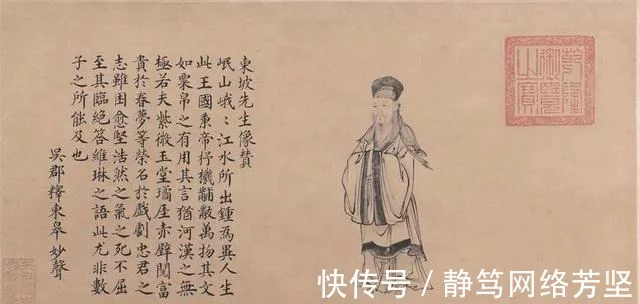 乾隆
御覽
之寶
東坡先生像贊
岷山峨〻江水所出鍾為異人生
此王國秉帝杼機黼黻萬物其文
如粟帛之有用其言猶河漢之無
極若夫紫微玉堂瓊厓赤壁閱富
貴於春夢等榮名於戲劇忠君之
志雖困愈堅浩然之氣之死不屈
至其臨絕答維琳之語此尤非數
子之所能及也
吳郡釋東皋妙聲
快传号 / 静笃网络芳坚